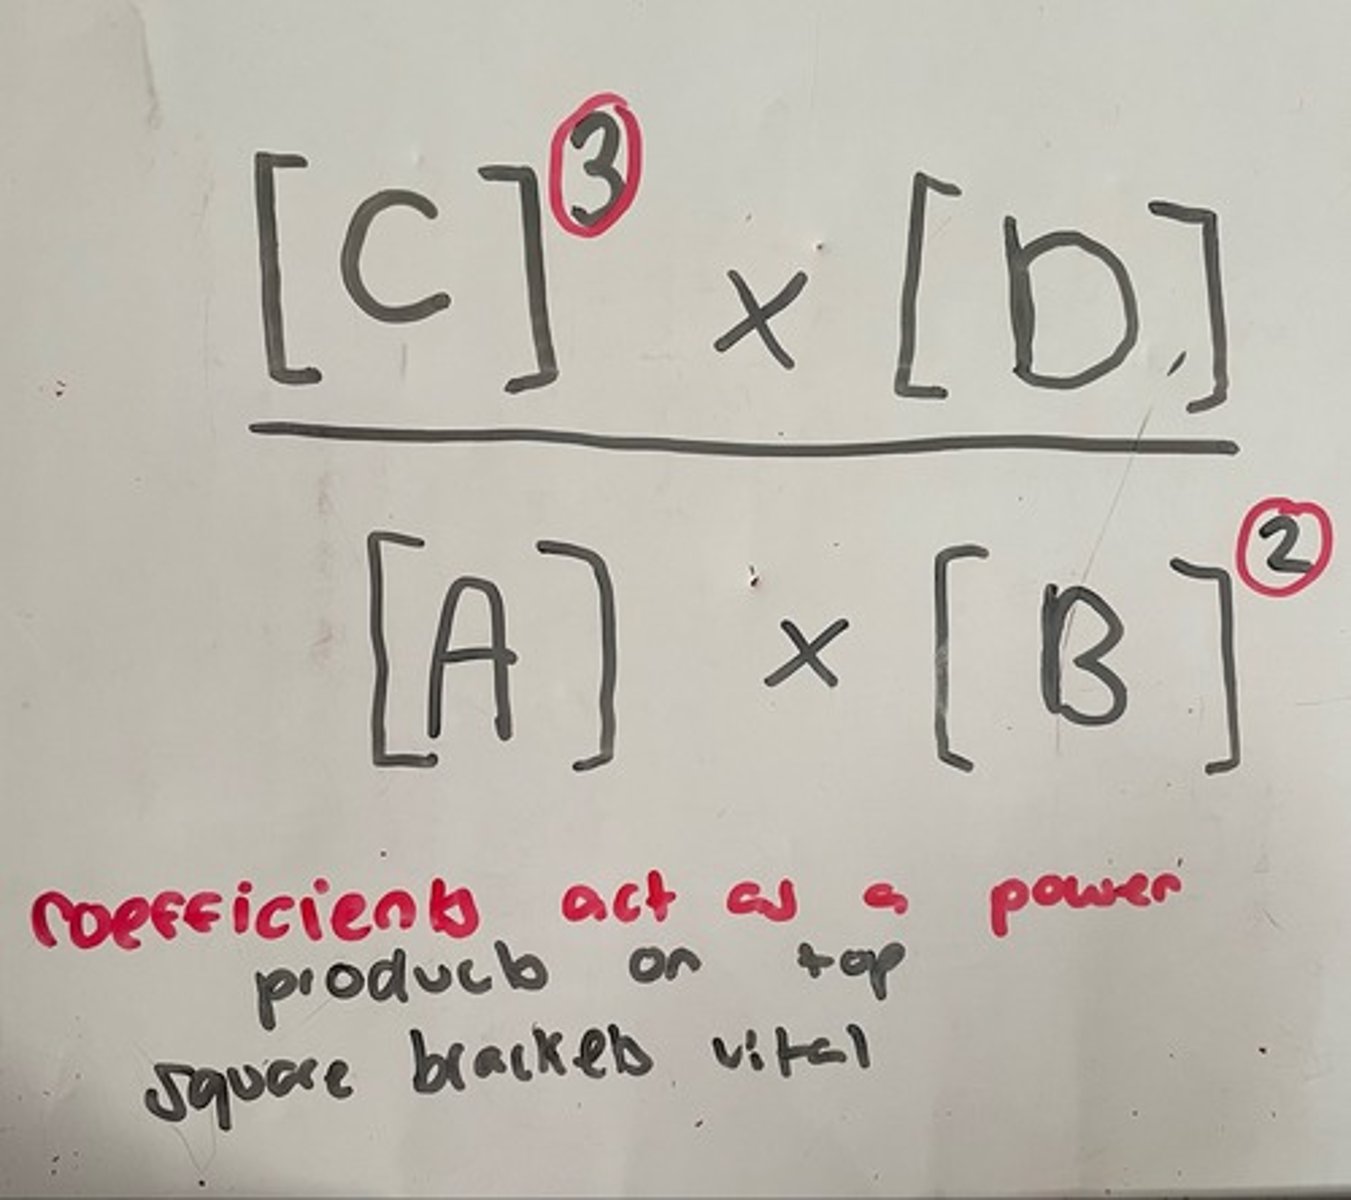 [C]³ × [D]
[A] × [B]²
coefficients act as a power
products on top
square brackets vital